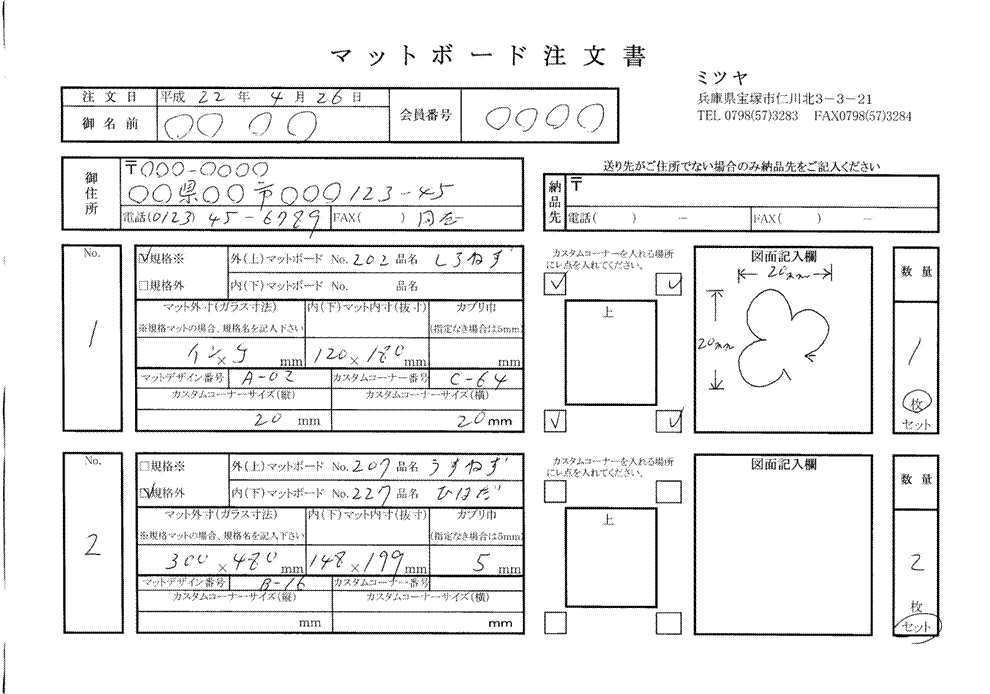 マットボード注文書
ミツヤ
兵庫県宝塚市仁川北3-3-21
TEL 0798(57)3283 FAX0798(57)3284
注文日 平成 22 年 4 月 26 日
御名前 〇〇 〇〇
会員番号 〇〇〇〇
御住所
〒〇〇〇-〇〇〇〇
〇〇県〇〇市〇〇〇123-45
電話(0123) 45-6789 FAX( ) 同上
送り先がご住所でない場合のみ納品先をご記入ください
納品先
〒
電話( ) - FAX( ) -
No.
1
☑規格※ 外(上)マットボード No.202 品名 しろねず
□規格外 内(下)マットボード No. 品名
マット外寸(ガラス寸法) 内(下)マット内寸(抜寸) カブリ巾
※規格マットの場合、規格名を記入下さい (指定なき場合は5mm)
インチ × mm 120 × 180 mm mm
マットデザイン番号 A-02 カスタムコーナー番号 C-64
カスタムコーナーサイズ(縦) カスタムコーナーサイズ(横)
20 mm 20 mm
カスタムコーナーを入れる場所
にレ点を入れてください。
上
図面記入欄
20mm
20mm
数量
1
枚
セット
No.
2
□規格※ 外(上)マットボード No.207 品名 うすねず
☑規格外 内(下)マットボード No.227 品名 ひはだ
マット外寸(ガラス寸法) 内(下)マット内寸(抜寸) カブリ巾
※規格マットの場合、規格名を記入下さい (指定なき場合は5mm)
300 × 480 mm 148 × 199 mm 5 mm
マットデザイン番号 B-16 カスタムコーナー番号
カスタムコーナーサイズ(縦) カスタムコーナーサイズ(横)
mm mm
カスタムコーナーを入れる場所
にレ点を入れてください。
上
図面記入欄
数量
2
枚
セット